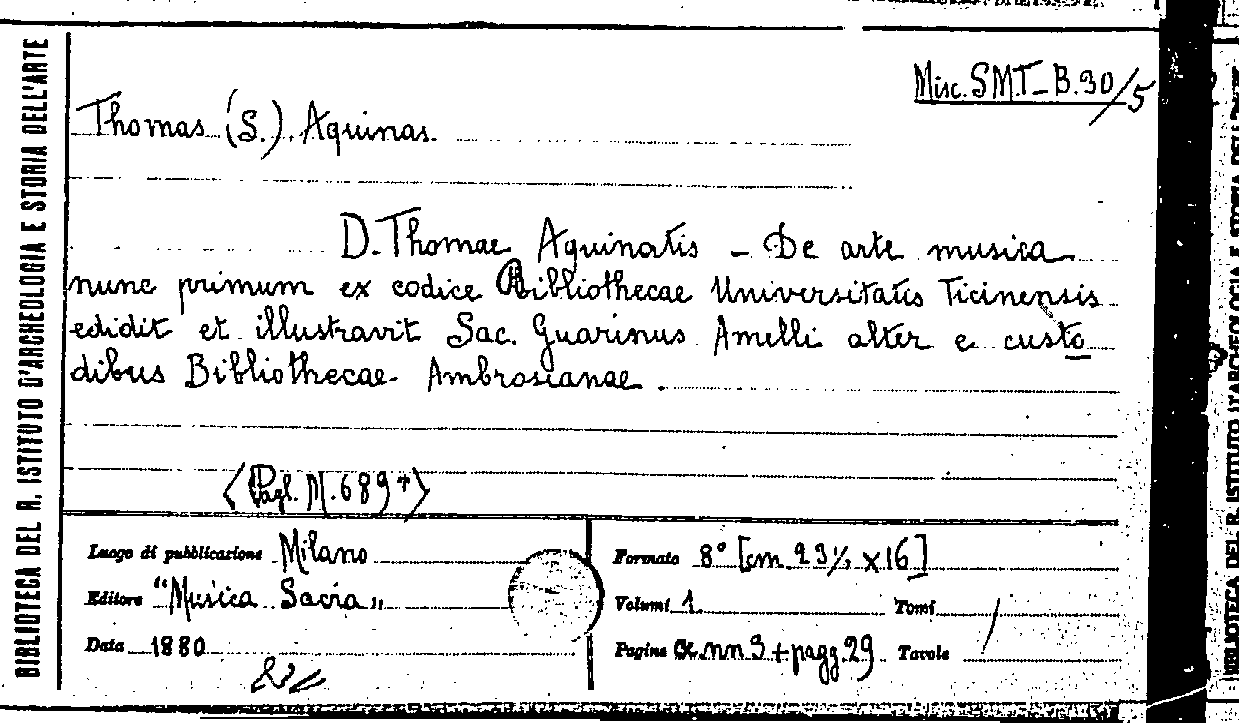 BIBLIOTECA DEL R. ISTITUTO D'ARCHEOLOGIA E STORIA DELL'ARTE
Misc. SMT-B.30/5
Thomas (S.) Aquinas.
D. Thomae Aquinatis - De arte musica
nunc primum ex codice Bibliothecae Universitatis Ticinensis
edidit et illustravit Sac. Guarinus Amelli alter e custo
dibus Bibliothecae Ambrosianae.
M.689
Luogo di pubblicazione Milano
Formato 8° [cm 23½ x 16]
Editore "Musica Sacra"
Volumi 1.
Tomi /
Data 1880
Pagine cc. nn 3 + pagg. 29
Tavole